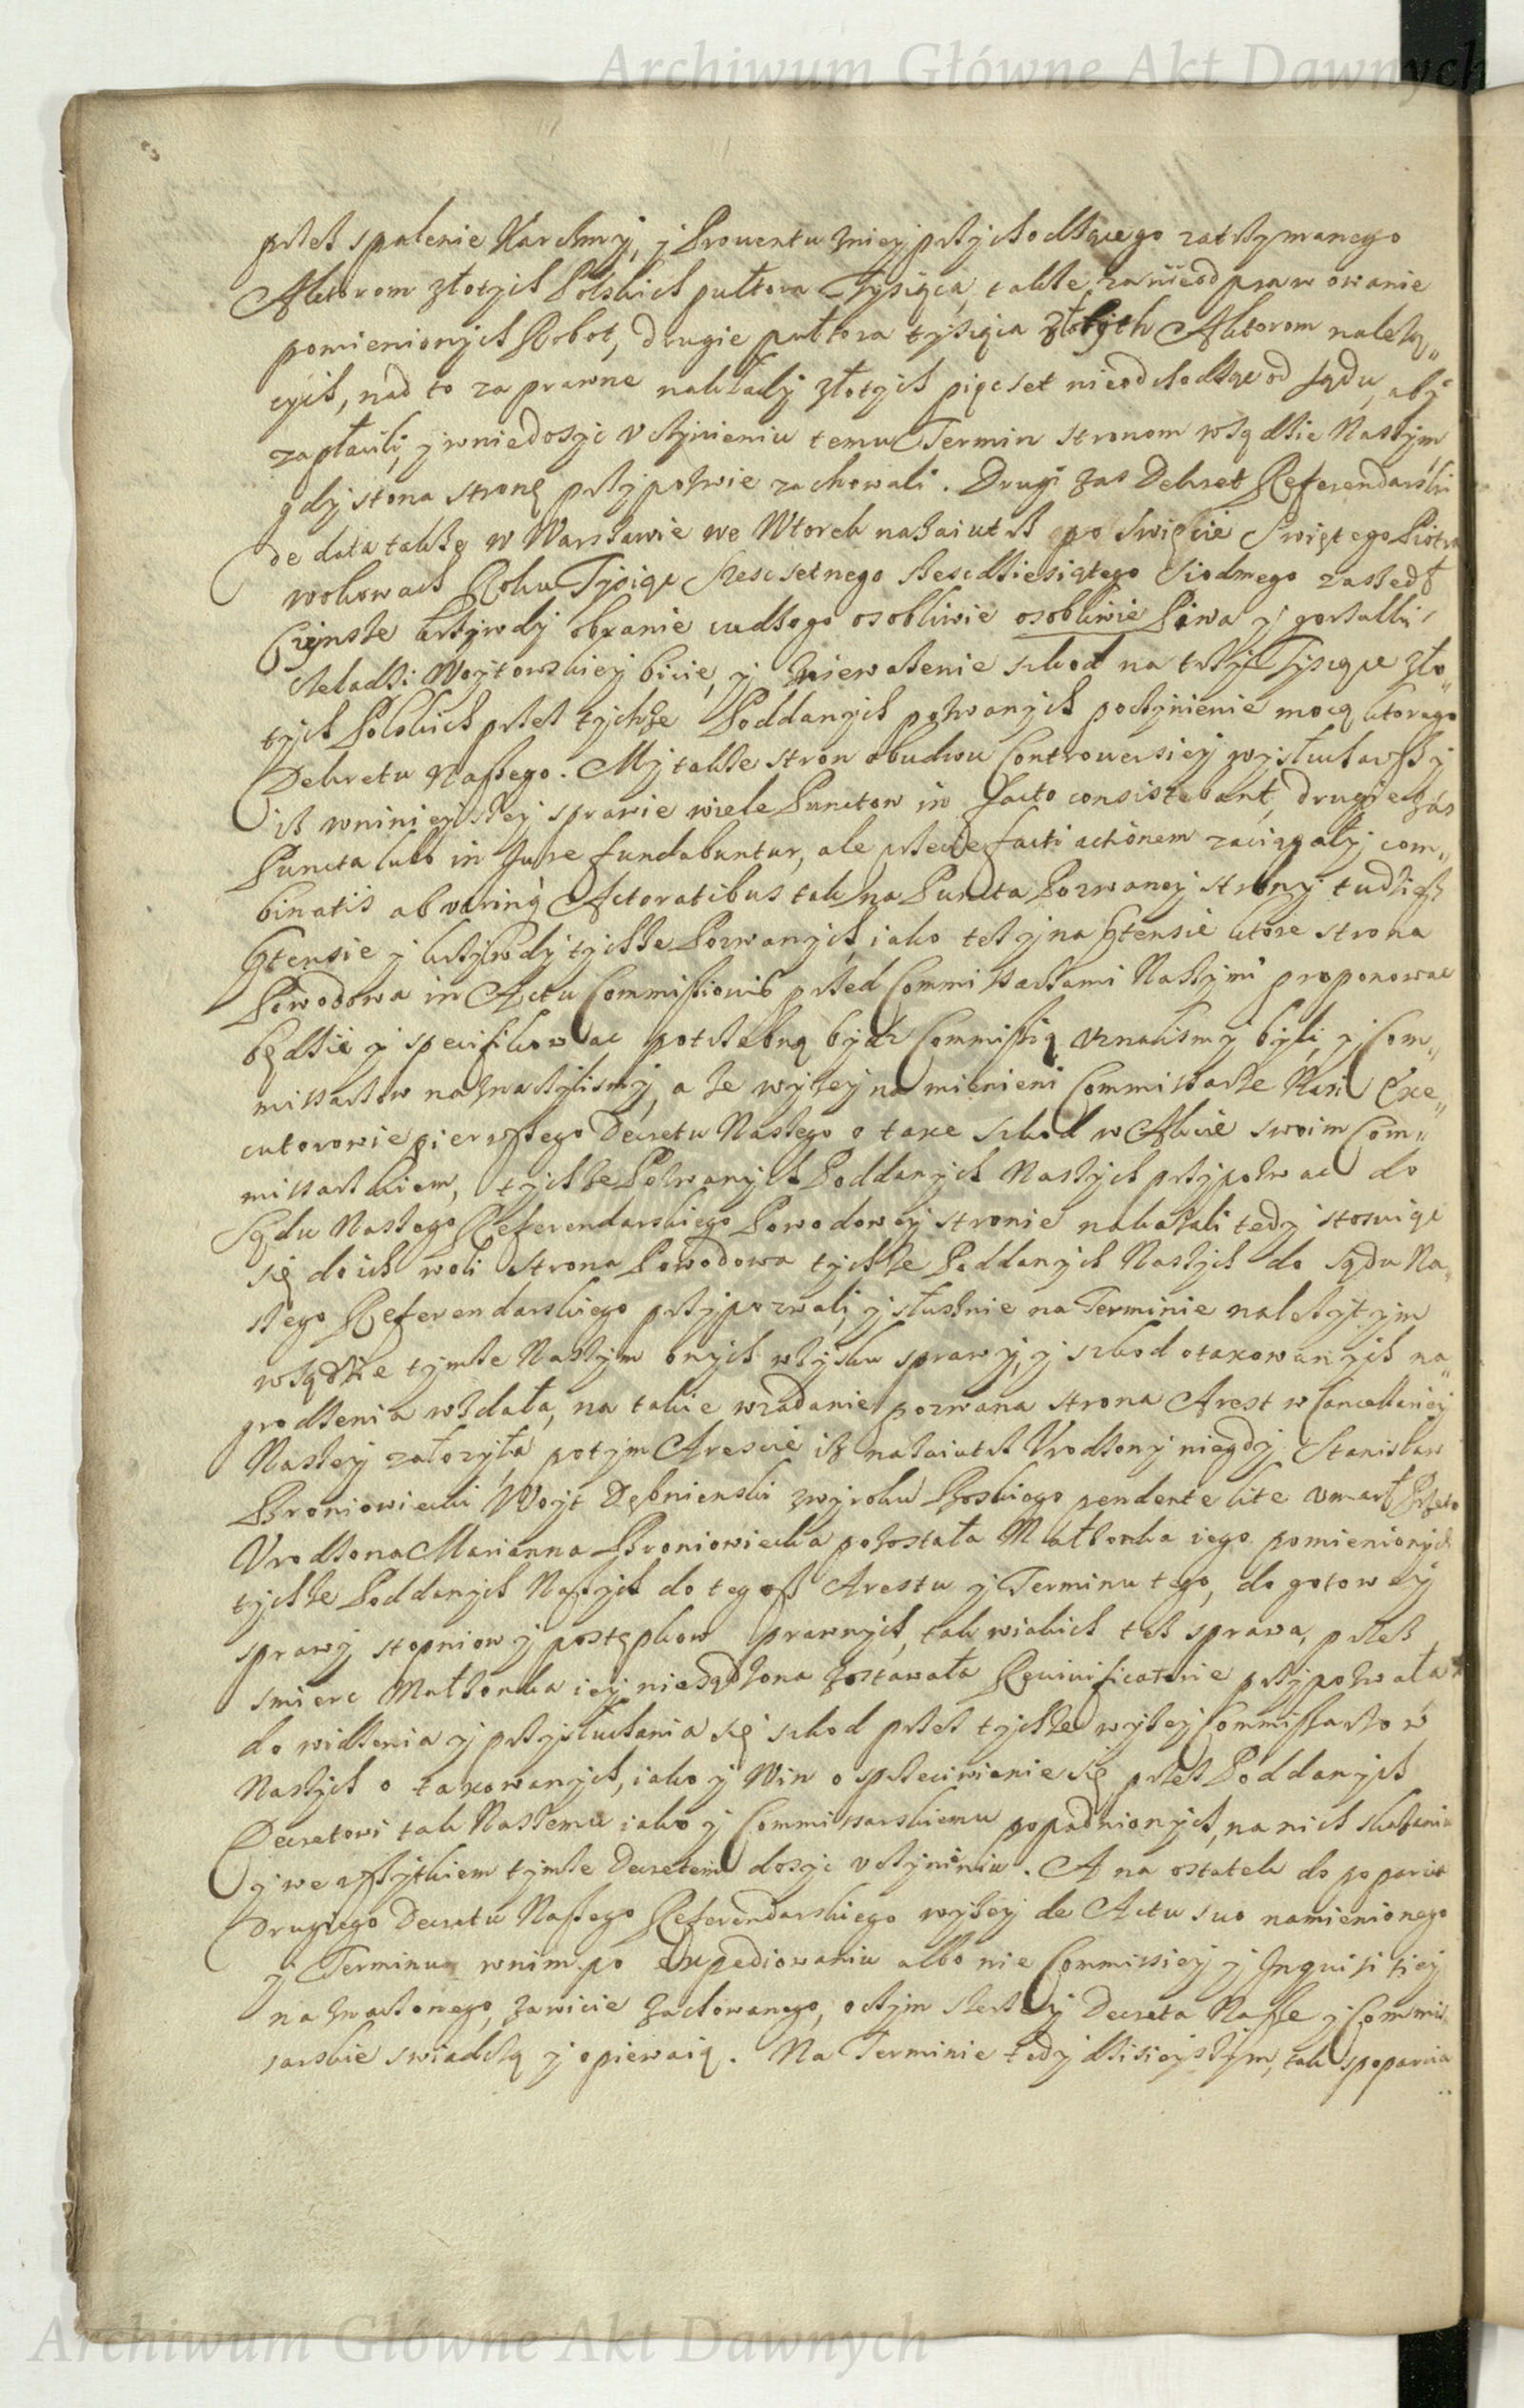 Archiwum Główne Akt Dawnych
przez spalenie Karczmy, y Prouentu zniey przychodzącego zatrzymanego
Aktorom złotych Polskich pułtora Tysiąca, także za nieodprawowanie
pomienionych Robot, drugie pułtora tysiąca złotych Aktorom należą„
cych, nad to za prawne nakłady złotych pięcset nieodchodząc od sądu, aby
zapłacili, y wniedosyc vczynieniu temu Termin stronom wsądzie Naszym,
gdy stona stronę przypozwie zachowali. Drugi zas Dekret Referendarski
de data także w Warszawie we Wtorek nazaiutrz po swięcie Swiętego Piotra
wokowach Roku Tysiąc Szescsetnego szescdziesiątego Siodmego zaszedł
krzywdy obranie cudzego osobliwie osobliwie Piwa y gorzałki
Czeladzi Woytowskiey bicie, y zniewazenie szkod na trzy Tysiące zło„
tych Polskich przez tychze Poddanych pozwanych poczynienie mocą ktorego
Dekretu Naszego. My także stron obudwu Controuersiey wysłuchawszy
iz wninieyszey sprawie wiele Punctow in facto consistebant, drugie zas
Puncta lubo in Jure fundabuntur, ale przecie facti actionem zaciągały com„
binatis ab utrinq Actoratibus tak na Puncta Pozwaney strony tudziesz
Ptensie y krzywdy tychze Pozwanych, iako tez y na Ptensie ktore strona
Powodowa in Actu Commissionis przed Commissarzami Naszymi proponowac
będzie y specifikowac potrzebną bydz Commissią vznalismy byli, y Com„
missarzow naznaczylismy, a ze wyzey namienieni Commissarze Nasi Exe„
cutorowie pierwszego Decretu Naszego o taxe szkod w Akcie swoim Com„
missarskiem, tychze Pozwanych Poddanych Naszych przypozwac do
Sądu Naszego Referendarskiego Powodowey stronie nakazali tedy stosuiąc
się do ich woli strona Powodowa tychze Poddanych Naszych do sądu Na„
szego Referendarskiego przypozwali, y słusznie na Terminie nalezytym
wsądzie tymze Naszym onych wzysku sprawy, y szkod otaxowanych na„
grodzenia wzdała, na takie wzdanie pozwana strona Arest w Cancellariey
Naszey załozyła, potym Arescie iz nazaiutrz Vrodzony niegdy Stanisław
Broniowiecki Woyt Dębnienski zwyroku Boskiego pendente lite vmarł Przeto
Vrodzona Marianna Broniowiecka pozostała Małzonka iego pomienionych
tychze Poddanych Naszych do tegosz Arestu y Terminu tego, do gotowey
sprawy stopniow y postępkow prawnych, tak wiakich tez sprawa, przez
smierc Małzonka iey nieosądzona zostawała Reuiuificatorie przypozwała
do widzenia y przysłuchania się szkod przez tychze wyzey Commissarzow
Naszych o taxowanych, iako y Win o sprzeciwienie się przez Poddanych
Decretowi tak Naszemu iako y Commissarskiemu popadnionych, na nich skazania
y we wszytkiem tymze Decretem dosyc vczynieniu. A na ostatek do poparcia
drugiego Decretu Naszego Referendarskiego wyzey de Actu suo namienionego
y Terminu wnim po Expediowaniu albo nie Commissiey y Inquisitiey
naznaczonego, zawicie zachowanego, oczym szerzey Decreta Nasze y Commis„
sarskie swiadczą y opiewaią. Na Terminie tedy dzisieyszym, tak spoparcia
Archiwum Główne Akt Dawnych